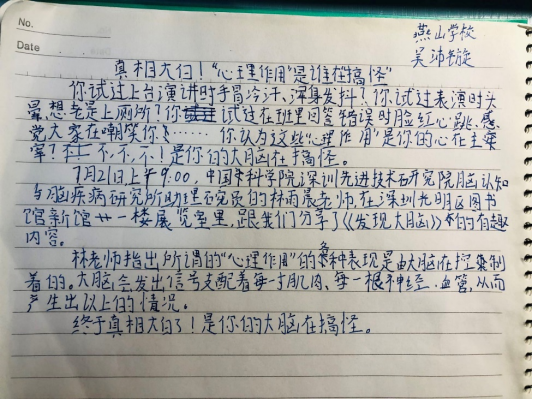 No.
Date
燕山学校
吴沛旋
真相大白！“心理作用”是谁在搞怪”
你试过上台演讲时手冒冷汗、浑身发抖？你试过表演时头
晕想老是上厕所？你试过在班里回答错误时脸红心跳、感
觉大家在嘲笑你、……你认为这些“心理作用”是你的心在主
宰？不、不、不！是你的大脑在搞怪。
7月21日上午9:00，中国科学院深圳先进技术研究院脑认知
与脑疾病研究所助理研究员的林雨晨老师，在深圳光明区图书
馆新馆廿一楼展览室里，跟我们分享了《发现大脑》的有趣
内容。
林老师指出所谓的“心理作用”的各种表现是由大脑在控制
着的。大脑会发出信号支配着每一寸肌肉、每一根神经、血管，从而
产生出以上的情况。
终于真相大白了！是你的大脑在搞怪。